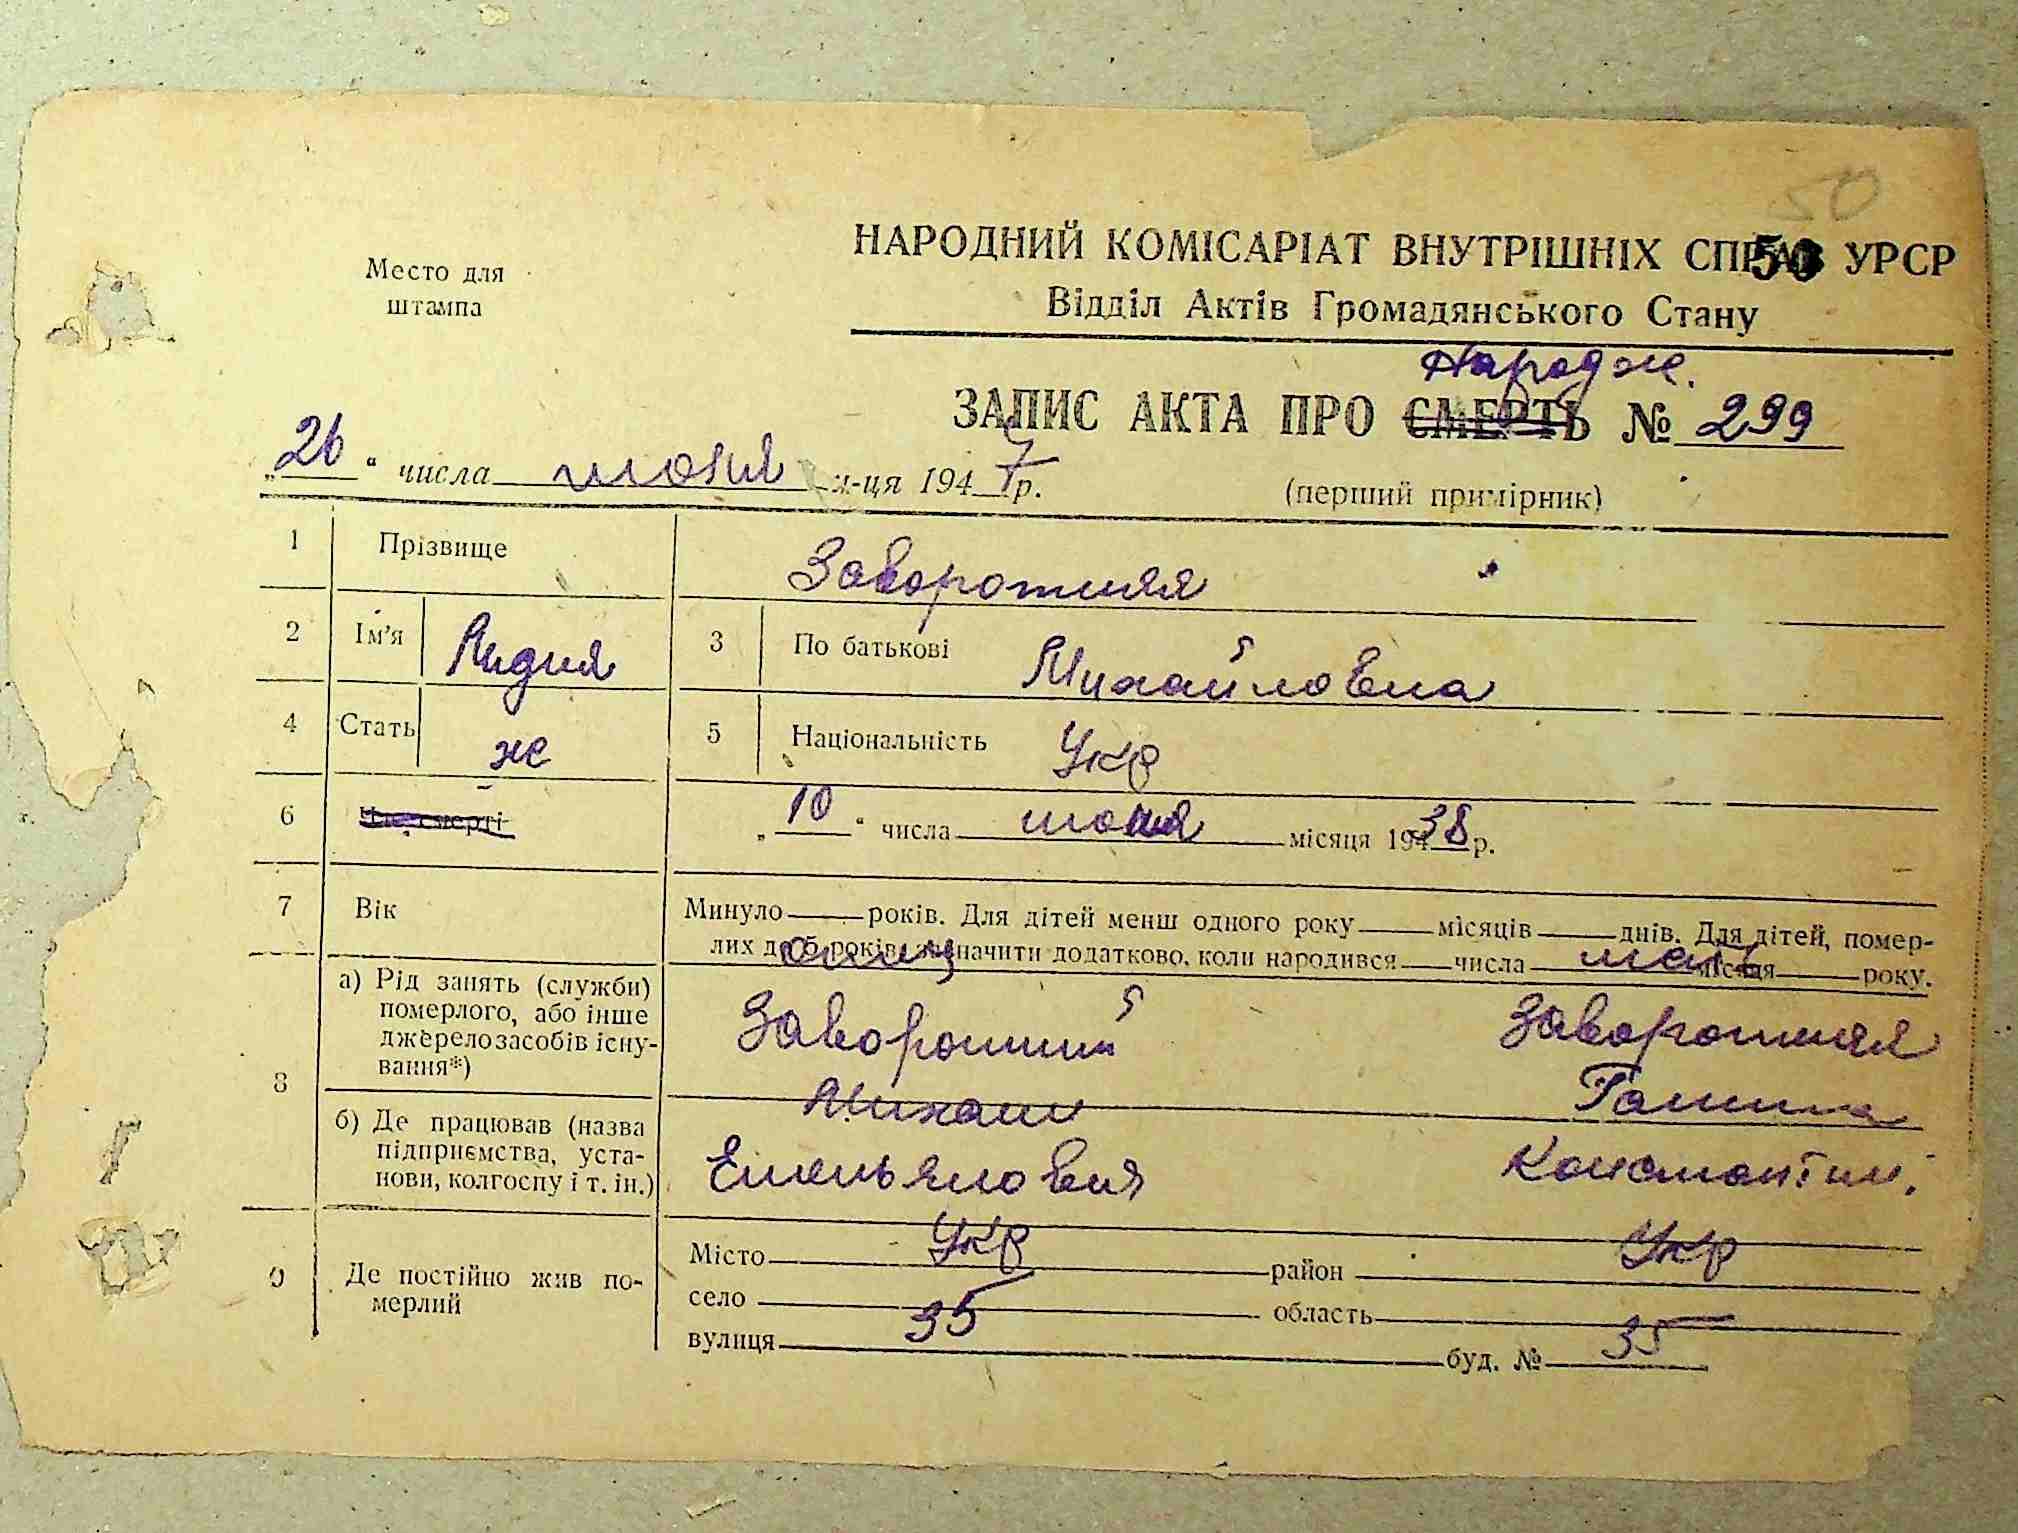 50
НАРОДНИЙ КОМІСАРІАТ ВНУТРІШНІХ СПРАВ УРСР
50
Место для
штампа
Відділ Актів Громадянського Стану
Народж.
ЗАПИС АКТА ПРО СМЕРТЬ № 299
„26“ числа июня м-ця 1947 р.
(перший примірник)
1 Прізвище Заворотняя
2 Ім’я Лидия 3 По батькові Михайловна
4 Стать ж 5 Національність Укр
6 Час смерті „10“ числа июня місяця 1938 р.
7 Вік Минуло років. Для дітей менш одного року місяців днів. Для дітей, помер-
лих до 5 років, зазначити додатково, коли народився числа місяця року.
отец мать
8 а) Рід занять (служби)
померлого, або інше
джерело засобів існу-
вання*)
Заворотний Заворотняя
Михаил Галина
б) Де працював (назва
підприємства, уста-
нови, колгоспу і т. ін.)
Емельянович Константин.
9 Де постійно жив по-
мерлий
Місто Укр район Укр
село область
вулиця 35 буд. № 35